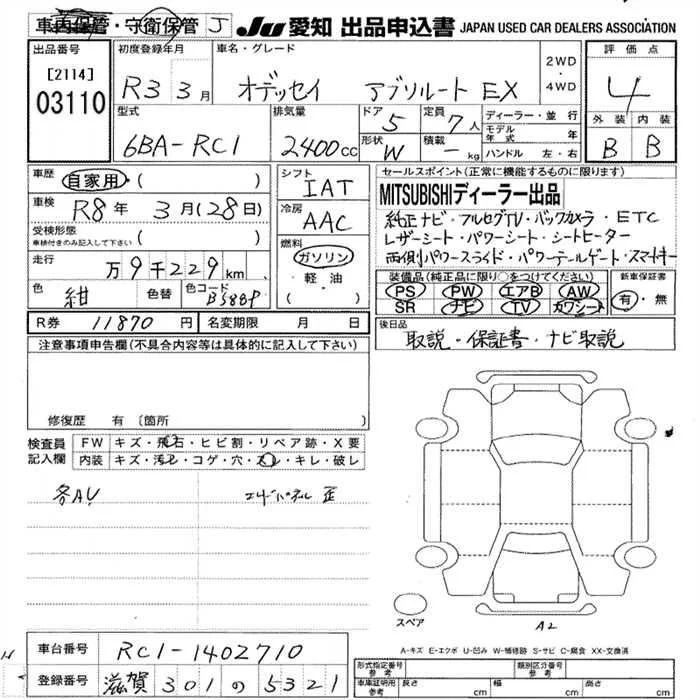 車内保管・守衛保管 J
JU 愛知 出品申込書 JAPAN USED CAR DEALERS ASSOCIATION
出品番号
[2114]
03110
初度登録年月
R3 3月
車名・グレード
オデッセイ アブソルート EX
2WD
・
4WD
評価点
4
外装 内装
B B
型式
6BA-RC1
排気量
2400cc
ドア
5
形状
W
定員
7人
積載
- kg
ディーラー・並行
モデル年式 年
ハンドル 左・右
車歴
自家用・( )
車検
R8年 3月(28日)
受検形態
車検付きのみ記入して下さい ( )
走行
万9千229km
色
紺
色替
色コード
B588P
シフト
IAT
冷房
AAC
燃料
ガソリン
・
軽油
セールスポイント(正常に機能するものに限ります)
MITSUBISHIディーラー出品
純正ナビ・フルセグTV・バックカメラ・ETC
レザーシート・パワーシート・シートヒーター
両側パワースライド・パワーテールゲート・スマートキー
装備品(純正品に限り○をつけてください)
PS PW エアB AW
SR ナビ TV カワシート
新車保証書
有・無
R券 11870円
名変期限 月 日
後日品
取説・保証書・ナビ取説
注意事項申告欄(不具合内容等は具体的に記入して下さい)
修復歴 有〔箇所
検査員
記入欄
FW キズ・飛石・ヒビ割・リペア跡・X要
内装 キズ・汚レ・コゲ・穴・スレ・キレ・破レ
各AU
エンドパネル 歪
スペア
A2
A-キズ E-エクボ U-凹み W-補修跡 S-サビ C-腐食 XX-交換済
車台番号
RC1-1402710
登録番号
滋賀 301 の 5321
形式指定番号
参考
類別区分番号
参考
車庫証明用
参考
長さ cm
幅 cm
高さ cm